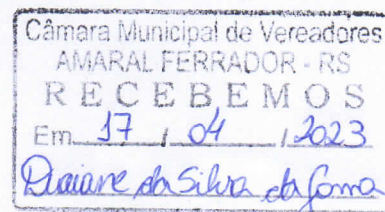 Câmara Municipal de Vereadores
AMARAL FERRADOR - RS
RECEBEMOS
Em 17 / 04 / 2023
da Silva da Gama